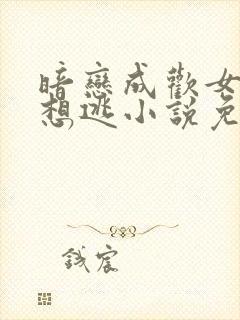 暗戀成歡女
想逃小說免
錢宸